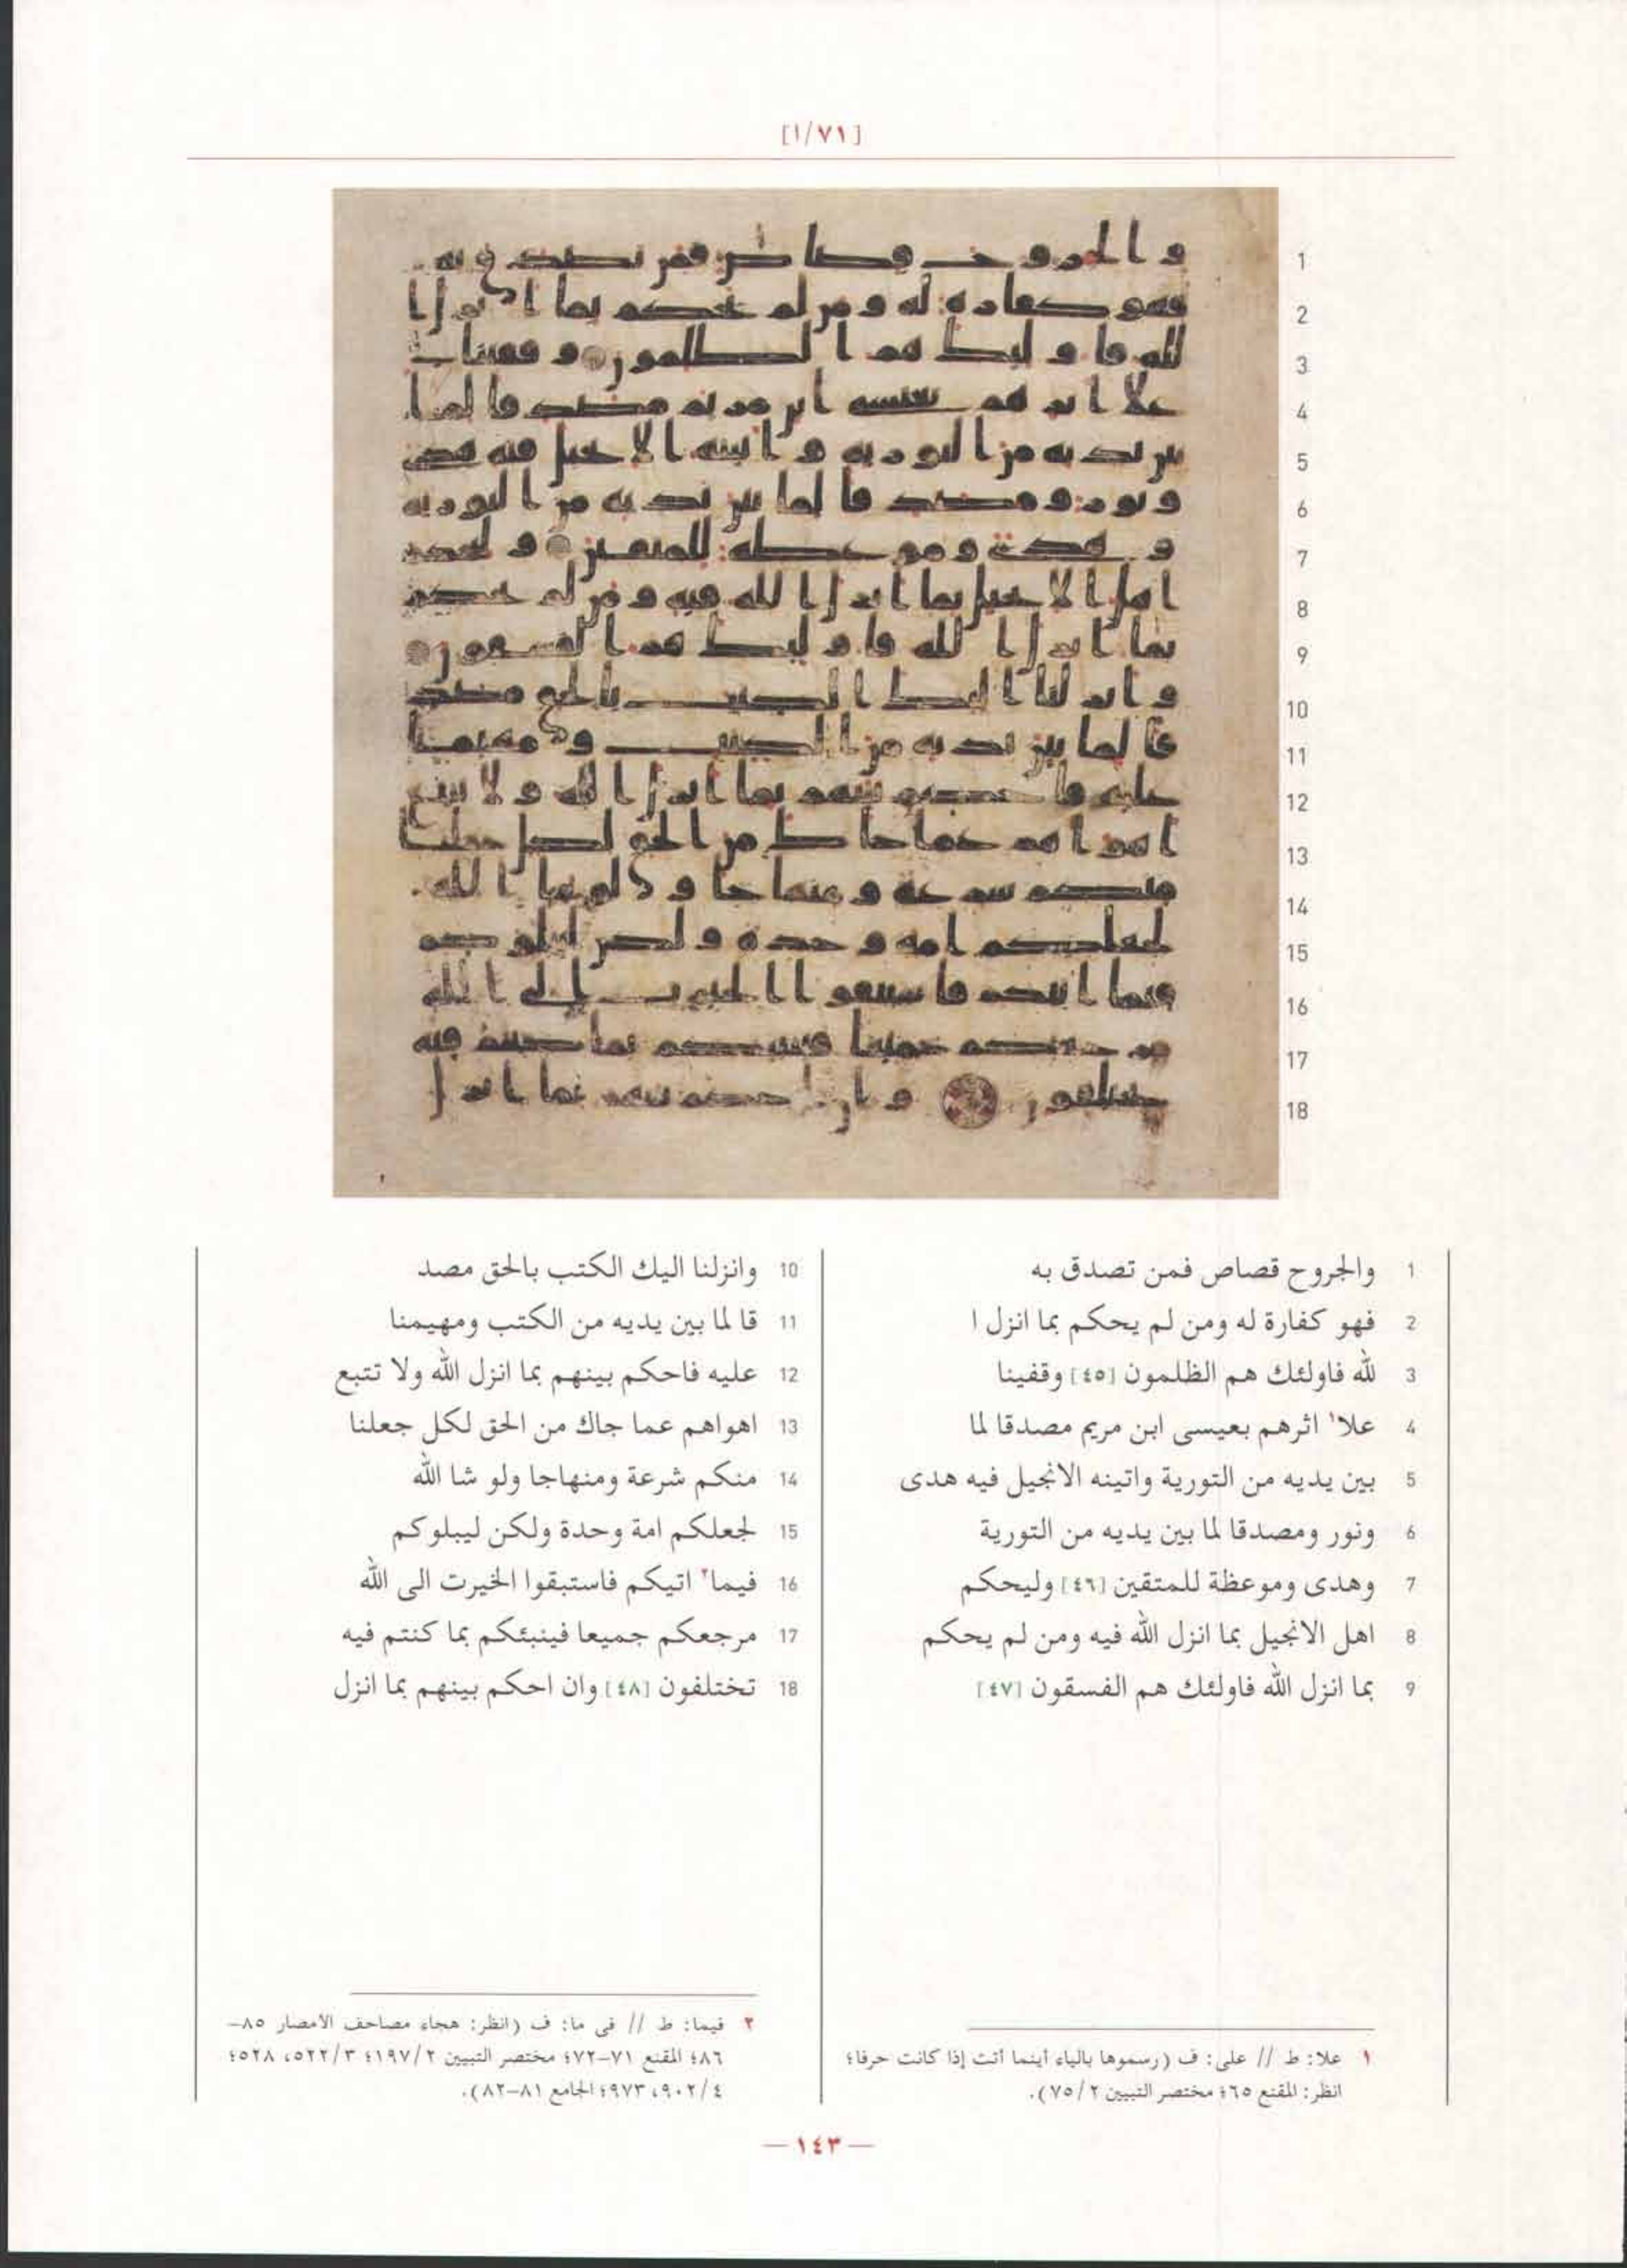 [٧١/١]
1 والجروح قصاص فمن تصدق به
2 فهو كفارة له ومن لم يحكم بما انزل ا
3 لله فاولئك هم الظلمون [٤٥] وقفينا
4 علا١ اثرهم بعيسى ابن مريم مصدقا لما
5 بين يديه من التورية واتينه الانجيل فيه هدى
6 ونور ومصدقا لما بين يديه من التورية
7 وهدى وموعظة للمتقين [٤٦] وليحكم
8 اهل الانجيل بما انزل الله فيه ومن لم يحكم
9 بما انزل الله فاولئك هم الفسقون [٤٧]
10 وانزلنا اليك الكتب بالحق مصد
11 قا لما بين يديه من الكتب ومهيمنا
12 عليه فاحكم بينهم بما انزل الله ولا تتبع
13 اهواهم عما جاك من الحق لكل جعلنا
14 منكم شرعة ومنهاجا ولو شا الله
15 لجعلكم امة وحدة ولكن ليبلوكم
16 فيما٢ اتيكم فاستبقوا الخيرت الى الله
17 مرجعكم جميعا فينبئكم بما كنتم فيه
18 تختلفون [٤٨] وان احكم بينهم بما انزل
١ علا: ط // على: ف (رسموها بالياء أينما أتت إذا كانت حرفا؛
انظر: المقنع ٦٥؛ مختصر التبيين ٧٥/٢).
٢ فيما: ط // في ما: ف (انظر: هجاء مصاحف الأمصار ٨٥–
٨٦؛ المقنع ٧١–٧٢؛ مختصر التبيين ١٩٧/٢؛ ٥٢٢/٣، ٥٢٨؛
٩٠٢/٤، ٩٧٣؛ الجامع ٨١–٨٢).
— ١٤٣ —